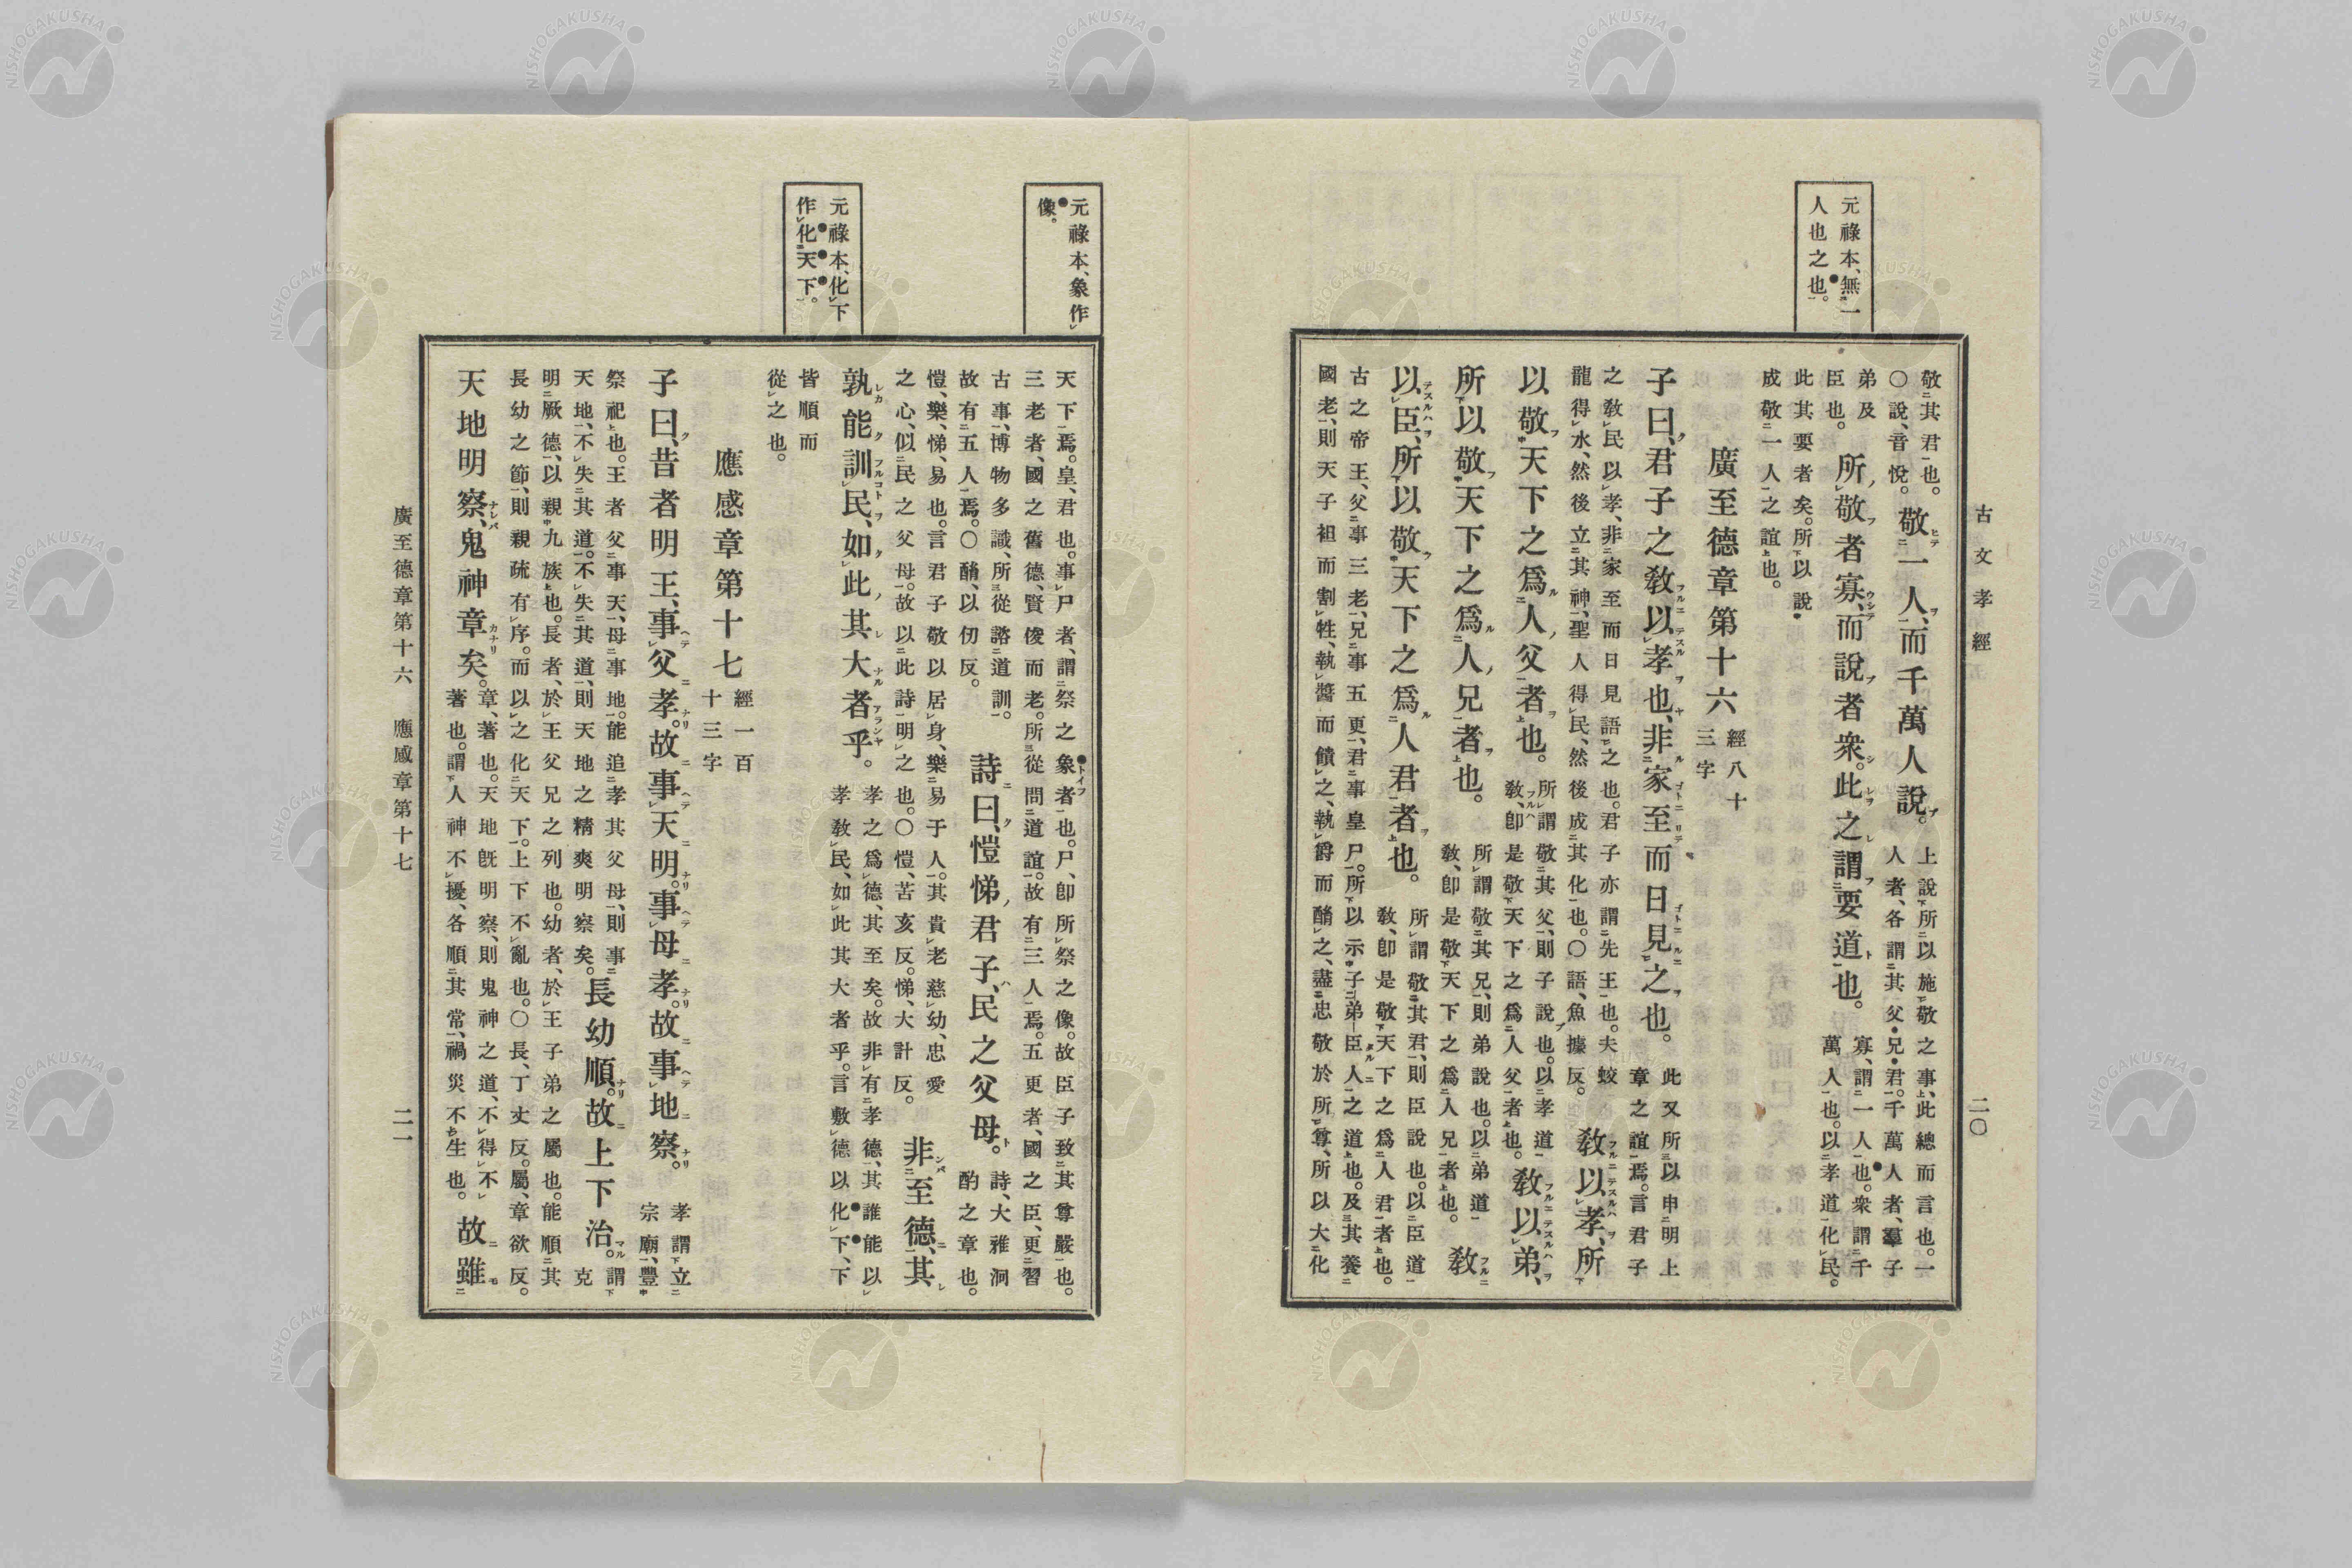 古文孝經 二〇
元祿本、無一
人也之也。
敬其君也。
〇說、音悅。
敬一人、而千萬人說。
上說所以施敬之事、此總而言也。一
人者、各謂其父・兄・君。千萬人者、羣子
弟及
臣也。
所敬者寡、而說者衆。此之謂要道也。
寡、謂一人也。衆謂千
萬人也。以孝道化民。
此其要者矣。所以說
成敬一人之誼也。
廣至德章第十六
經八十
三字
子曰、君子之敎以孝也、非家至而日見之也。
此又所以申明上
章之誼焉。言君子
之敎民以孝、非家至而日見語之也。君子亦謂先王也。夫蛟
龍得水、然後立其神、聖人得民、然後成其化也。〇語、魚據反。
敎以孝、所
以敬天下之爲人父者也。
所謂敬其父、則子說也。以孝道
敎、卽是敬天下之爲人父者也。
敎以弟、
所以敬天下之爲人兄者也。
所謂敬其兄、則弟說也。以弟道
敎、卽是敬天下之爲人兄者也。
敎
以臣、所以敬天下之爲人君者也。
所謂敬其君、則臣說也。以臣道
敎、卽是敬天下之爲人君者也。
古之帝王、父事三老、兄事五更、君事皇尸。所以示子弟臣人之道也。及其養
國老、則天子袒而割牲、執醬而饋之、執爵而酳之、盡忠敬於所尊、所以大化
元祿本、象作
像。
元祿本、化下
作化天下。
天下焉。皇、君也。事尸者、謂祭之象者也。尸、卽所祭之像。故臣子致其尊嚴也。
三老者、國之舊德、賢俊而老。所從問道誼。故有三人焉。五更者、國之臣、更習
古事、博物多識、所從諮道訓。
故有五人焉。〇酳、以仞反。
詩曰、愷悌君子、民之父母。
詩、大雅泂
酌之章也。
愷、樂、悌、易也。言君子敬以居身、樂易于人。其貴老慈幼、忠愛
之心、似民之父母。故以此詩明之也。〇愷、苦亥反。悌、大計反。
非至德、其
孰能訓民、如此其大者乎。
孝之爲德、其至矣。故非有孝德、其誰能以
孝敎民、如此其大者乎。言敷德以化下、下
皆順而
從之也。
應感章第十七
經一百
十三字
子曰、昔者明王、事父孝。故事天明。事母孝。故事地察。
孝謂立
宗廟、豐
祭祀也。王者父事天、母事地。能追孝其父母、則事
天地、不失其道。不失其道、則天地之精爽明察矣。
長幼順。故上下治。
謂克
明厥德、以親九族也。長者、於王父兄之列也。幼者、於王子弟之屬也。能順其
長幼之節、則親疏有序。而以之化天下。上下不亂也。〇長、丁丈反。屬、章欲反。
天地明察、鬼神章矣。
章、著也。天地旣明察、則鬼神之道、不得不
著也。謂人神不擾、各順其常、禍災不生也。
故雖
廣至德章第十六 應感章第十七 二一
NISHOGAKUSHA